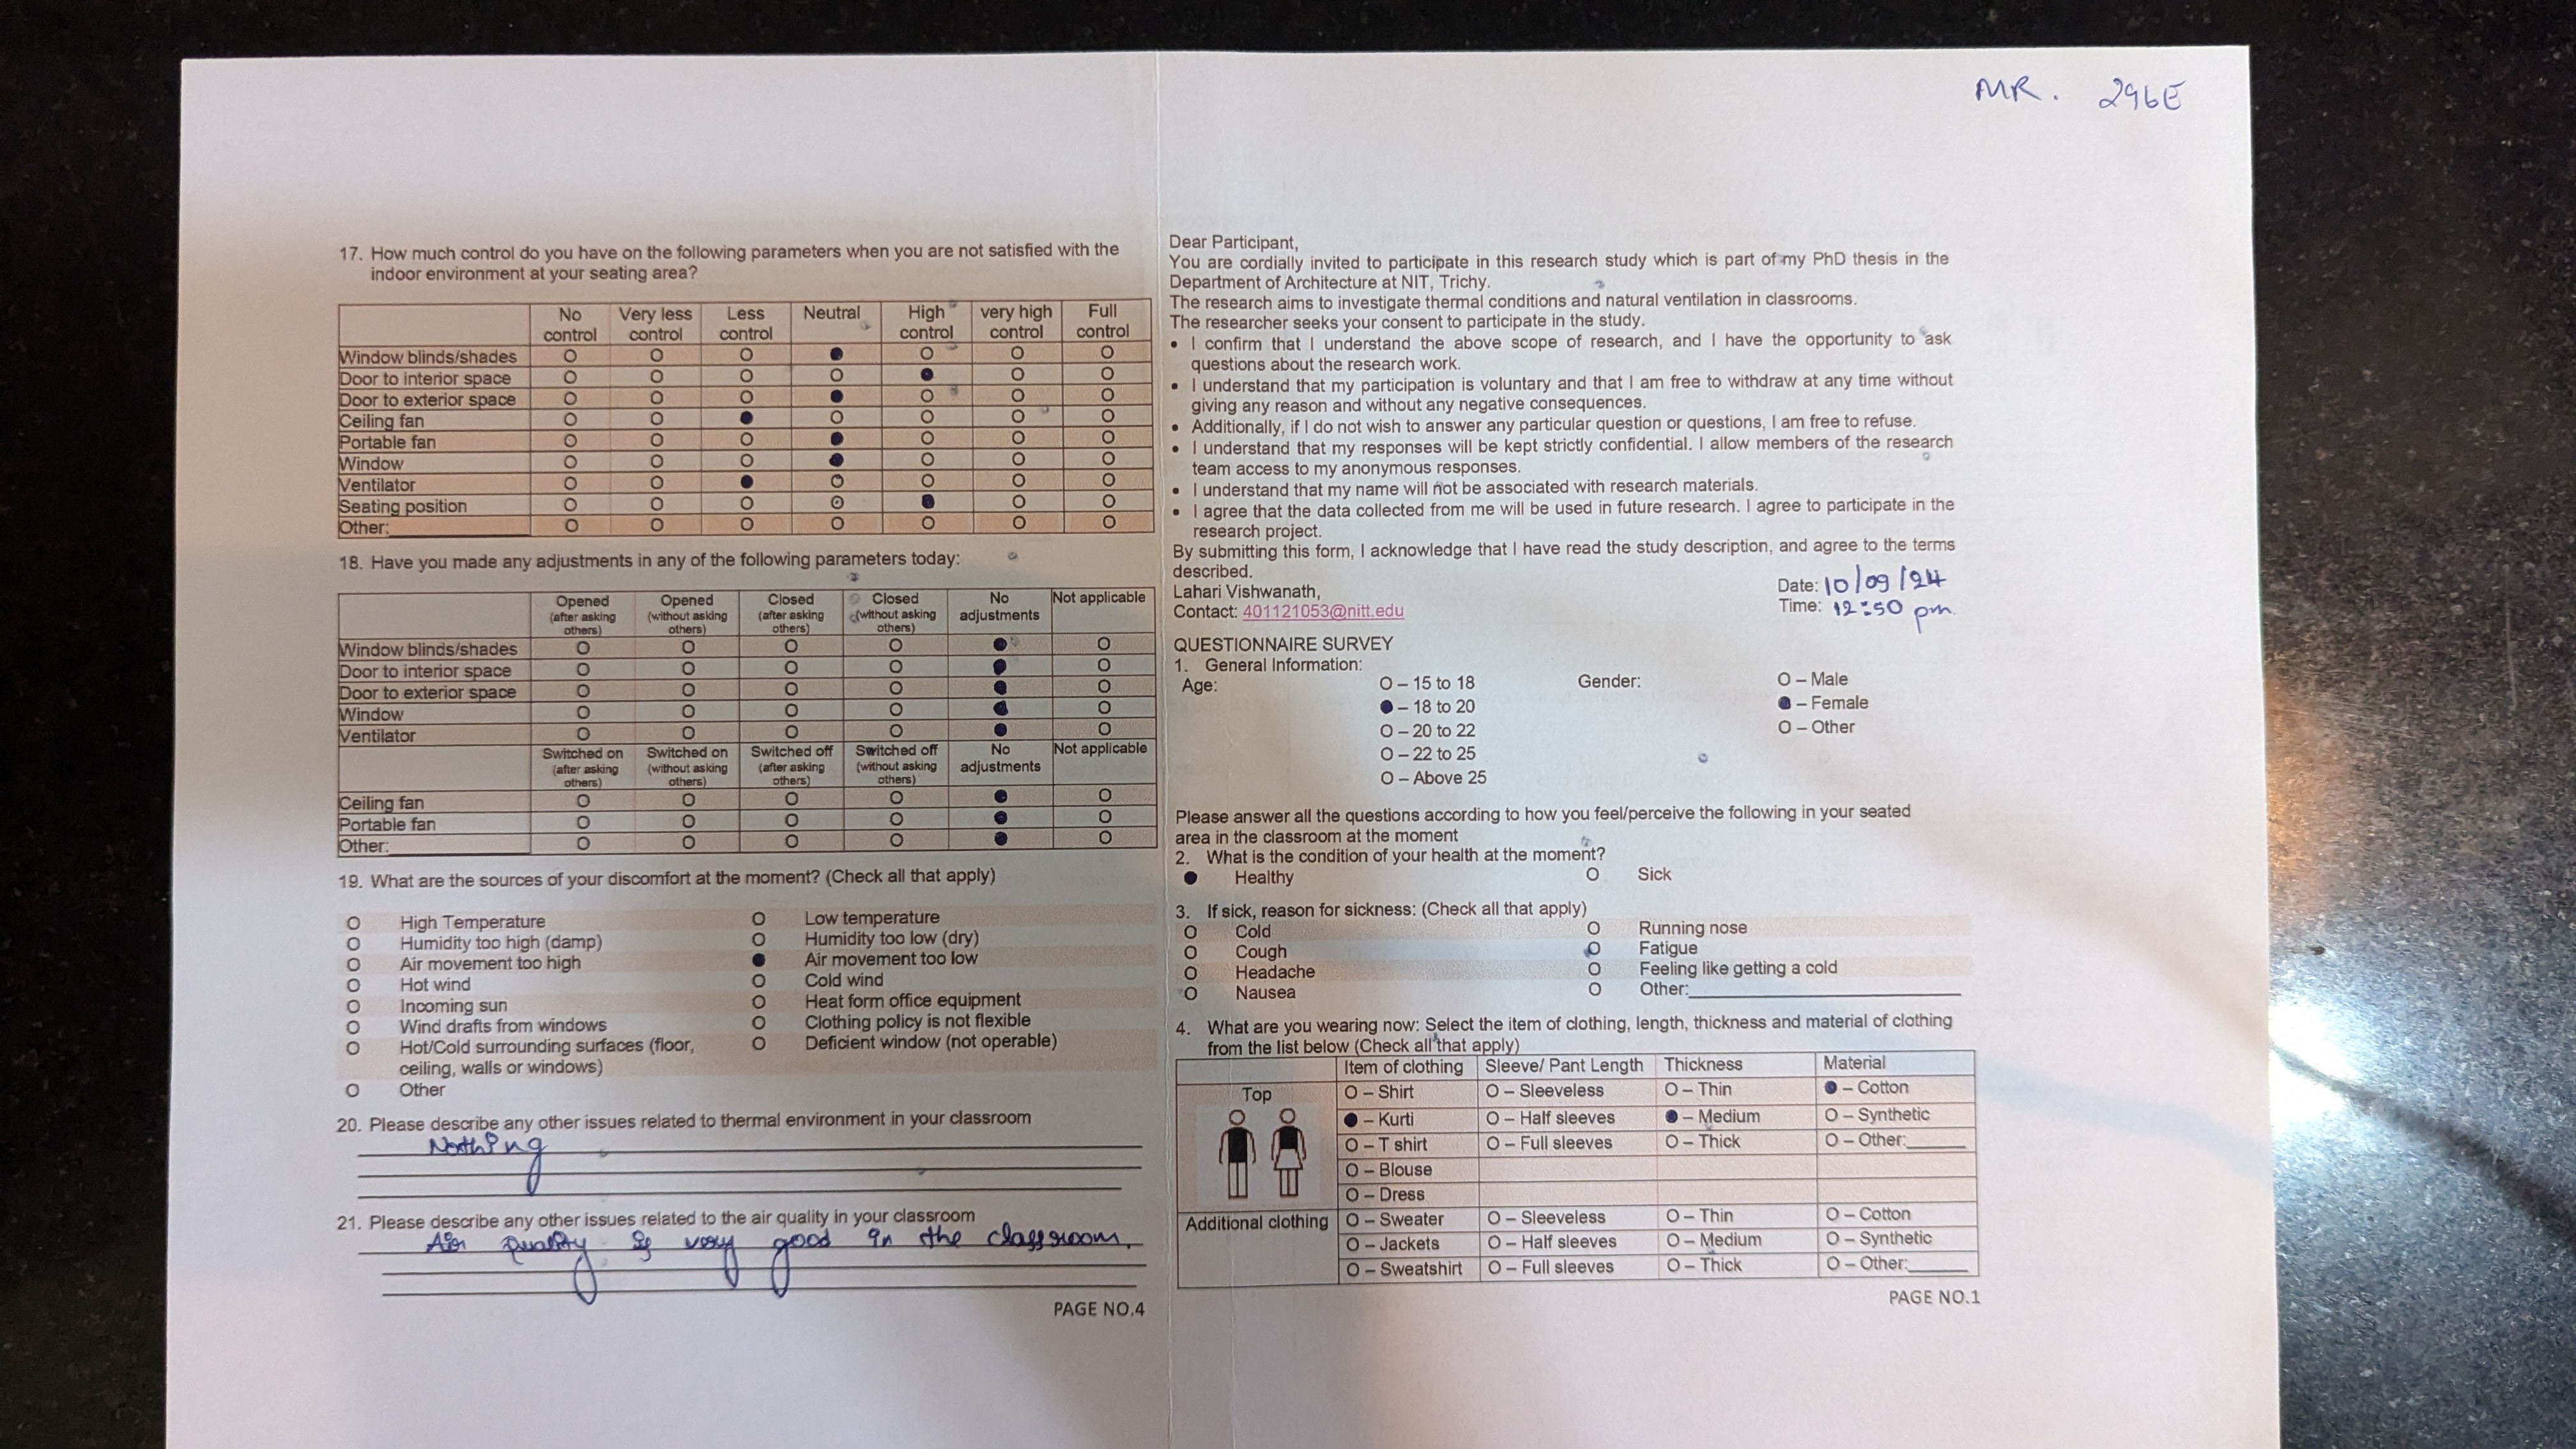 17. How much control do you have on the following parameters when you are not satisfied with the
indoor environment at your seating area?
No control | Very less control | Less control | Neutral | High control | very high control | Full control
Window blinds/shades O O O ● O O O
Door to interior space O O O O ● O O
Door to exterior space O O O ● O O O
Ceiling fan O O ● O O O O
Portable fan O O O ● O O O
Window O O O ● O O O
Ventilator O O ● O O O O
Seating position O O O O ● O O
Other:______ O O O O O O O
18. Have you made any adjustments in any of the following parameters today:
Opened (after asking others) | Opened (without asking others) | Closed (after asking others) | Closed (without asking others) | No adjustments | Not applicable
Window blinds/shades O O O O ● O
Door to interior space O O O O ● O
Door to exterior space O O O O ● O
Window O O O O ● O
Ventilator O O O O ● O
Switched on (after asking others) | Switched on (without asking others) | Switched off (after asking others) | Switched off (without asking others) | No adjustments | Not applicable
Ceiling fan O O O O ● O
Portable fan O O O O ● O
Other:______ O O O O ● O
19. What are the sources of your discomfort at the moment? (Check all that apply)
O High Temperature O Low temperature
O Humidity too high (damp) O Humidity too low (dry)
O Air movement too high ● Air movement too low
O Hot wind O Cold wind
O Incoming sun O Heat form office equipment
O Wind drafts from windows O Clothing policy is not flexible
O Hot/Cold surrounding surfaces (floor, O Deficient window (not operable)
ceiling, walls or windows)
O Other
20. Please describe any other issues related to thermal environment in your classroom
Nothing
21. Please describe any other issues related to the air quality in your classroom
Air quality is very good in the classroom.
PAGE NO.4
MR. 296E
Dear Participant,
You are cordially invited to participate in this research study which is part of my PhD thesis in the
Department of Architecture at NIT, Trichy.
The research aims to investigate thermal conditions and natural ventilation in classrooms.
The researcher seeks your consent to participate in the study.
• I confirm that I understand the above scope of research, and I have the opportunity to ask
questions about the research work.
• I understand that my participation is voluntary and that I am free to withdraw at any time without
giving any reason and without any negative consequences.
• Additionally, if I do not wish to answer any particular question or questions, I am free to refuse.
• I understand that my responses will be kept strictly confidential. I allow members of the research
team access to my anonymous responses.
• I understand that my name will not be associated with research materials.
• I agree that the data collected from me will be used in future research. I agree to participate in the
research project.
By submitting this form, I acknowledge that I have read the study description, and agree to the terms
described.
Lahari Vishwanath,
Contact: 401121053@nitt.edu
Date: 10/09/24
Time: 12:50 pm.
QUESTIONNAIRE SURVEY
1. General Information:
Age: O – 15 to 18 Gender: O – Male
● – 18 to 20 ● – Female
O – 20 to 22 O – Other
O – 22 to 25
O – Above 25
Please answer all the questions according to how you feel/perceive the following in your seated
area in the classroom at the moment
2. What is the condition of your health at the moment?
● Healthy O Sick
3. If sick, reason for sickness: (Check all that apply)
O Cold O Running nose
O Cough O Fatigue
O Headache O Feeling like getting a cold
O Nausea O Other:______
4. What are you wearing now: Select the item of clothing, length, thickness and material of clothing
from the list below (Check all that apply)
Item of clothing | Sleeve/ Pant Length | Thickness | Material
Top O – Shirt O – Sleeveless O – Thin ● – Cotton
● – Kurti O – Half sleeves ● – Medium O – Synthetic
O – T shirt O – Full sleeves O – Thick O – Other:______
O – Blouse
O – Dress
Additional clothing O – Sweater O – Sleeveless O – Thin O – Cotton
O – Jackets O – Half sleeves O – Medium O – Synthetic
O – Sweatshirt O – Full sleeves O – Thick O – Other:______
PAGE NO.1